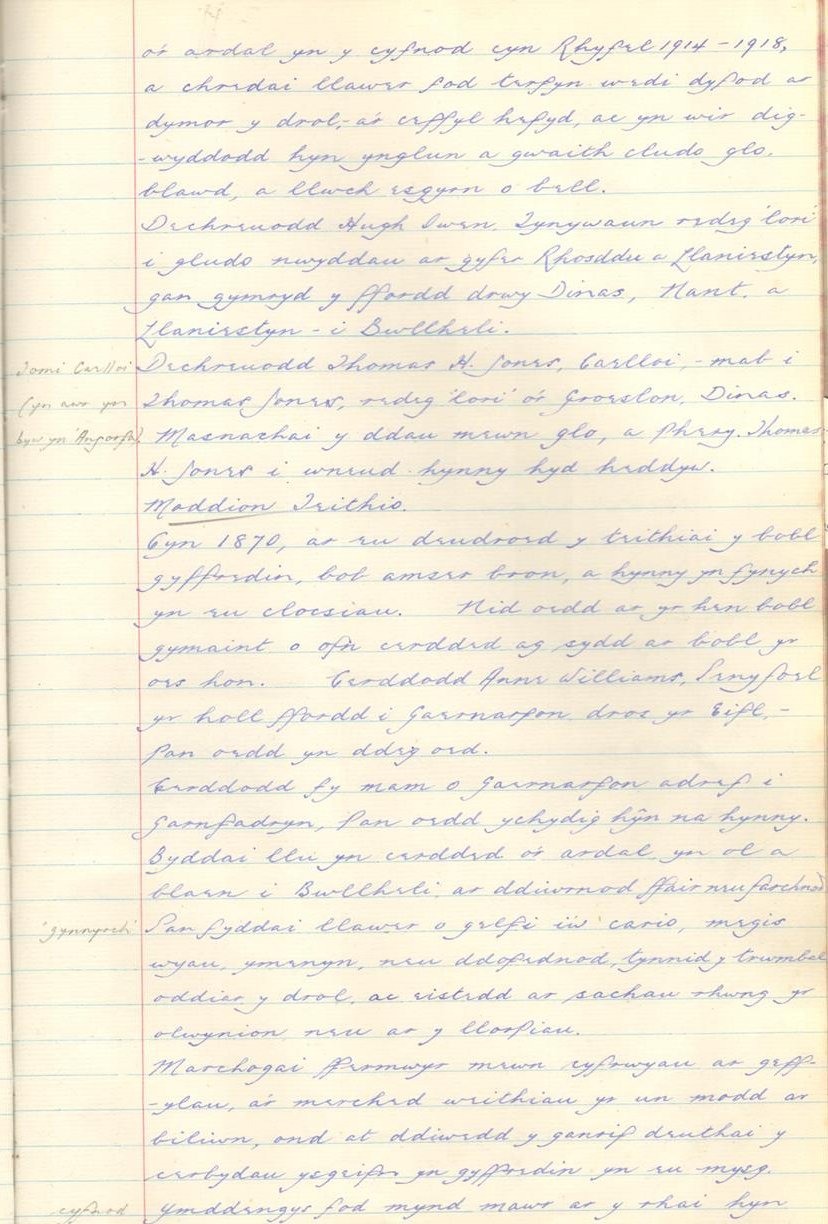 o'r ardal yn y cyfnod cyn Rhyfel 1914 - 1918,
a chredai llawer fod terfyn wedi dyfod ar
dymor y drol, - a'r ceffyl hefyd, ac yn wir dig-
-wyddodd hyn ynglun a gwaith cludo glo,
blawd, a llwch esgyrn o bell.
Dechreuodd Hugh Owen, Tynywaun redeg 'lori'
i gludo nwyddau ar gyfer Rhosddu a Llaniestyn,
gan gymryd y ffordd drwy Dinas, Nant, a
Llaniestyn - i Bwllheli.
Tomi Caelloi
Dechreuodd Thomas H. Jones, Caelloi, - mab i
(yn awr yn
Thomas Jones, redeg 'lori' o'r Groeslon, Dinas.
byw yn 'Angorfa')
Masnachai y ddau mewn glo, a phery Thomas
H. Jones i wneud hynny hyd heddyw.
Moddion Teithio.
Cyn 1870, ar eu deudroed y teithiai y bobl
gyffredin, bob amser bron, a hynny yn fynych
yn eu clocsiau. Nid oedd ar yr hen bobl
gymaint o ofn cerdded ag sydd ar bobl yr
oes hon. Cerddodd Anne Williams, Penyfoel
yr holl ffordd i Gaernarfon dros yr Eifl, -
pan oedd yn ddeg oed.
Cerddodd fy mam o Gaernarfon adref i
Garnfadryn, pan oedd ychydig hŷn na hynny.
Byddai llu yn cerdded o'r ardal yn ol a
blaen i Bwllheli ar ddiwrnod ffair neu farchnad
'gynnyrch'
Pan fyddai llawer o gelfi i'w cario, megis
wyau, ymenyn, neu ddofednod, tynnid y trwmbel
oddiar y drol, ac eistedd ar sachau rhwng yr
olwynion neu ar y llorfiau.
Marchogai ffermwyr mewn cyfrwyau ar geff-
-ylau, a'r merched weithiau yr un modd ar
biliwn, ond at ddiwedd y ganrif deuthai y
cerbydau ysgeifn yn gyffredin yn eu mysg.
cyfnod
Ymddengys fod mynd mawr ar y rhai hyn